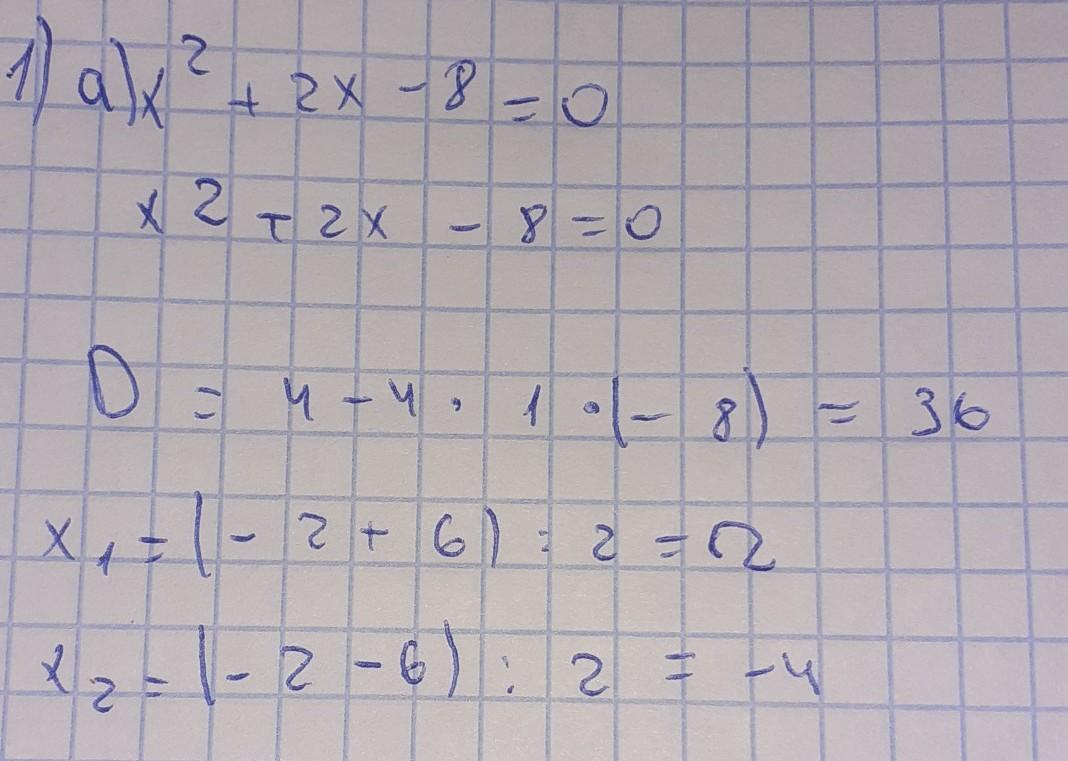 1) a) x² + 2x - 8 = 0
x2 + 2x - 8 = 0
D = 4 - 4 · 1 · (- 8) = 36
x₁ = (- 2 + 6) : 2 = 2
x₂ = (- 2 - 6) : 2 = -4